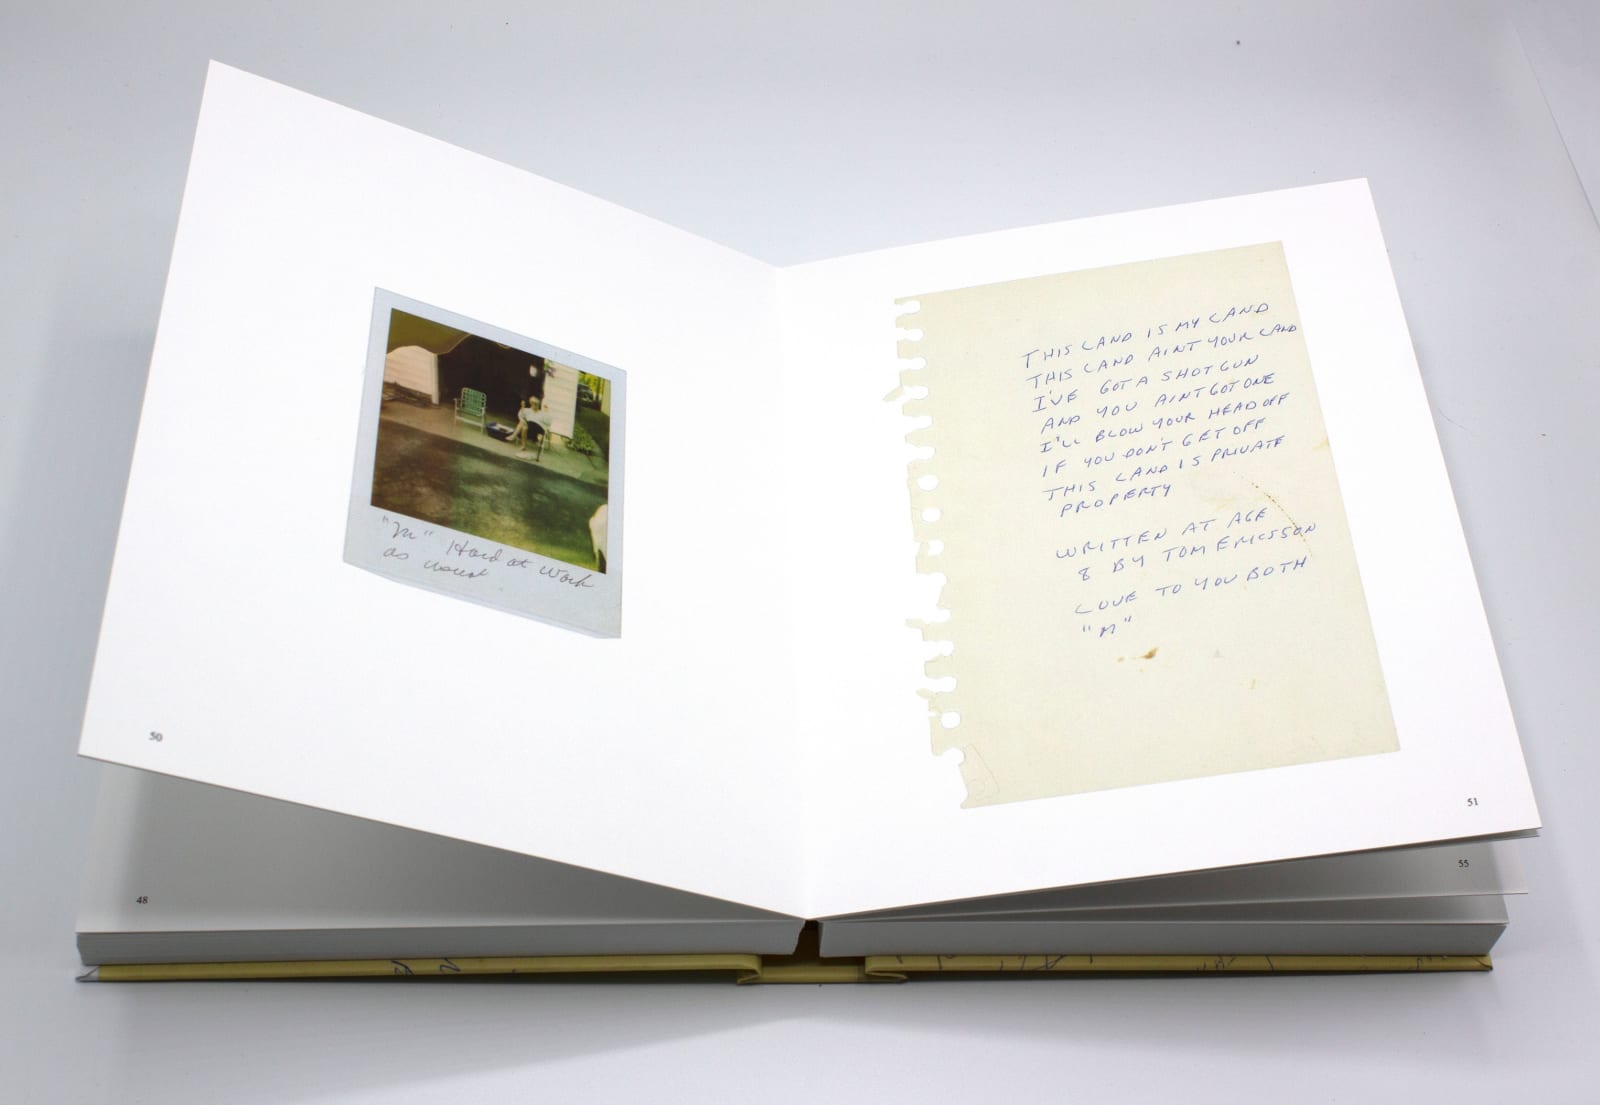 "M" Hard at Work
as usual
50
48
THIS LAND IS MY LAND
THIS LAND AINT YOUR LAND
I'VE GOT A SHOTGUN
AND YOU AINT GOT ONE
I'LL BLOW YOUR HEAD OFF
IF YOU DON'T GET OFF
THIS LAND IS PRIVATE
PROPERTY
WRITTEN AT AGE
8 BY TOM ERICSSON
LOVE TO YOU BOTH
"M"
51
55